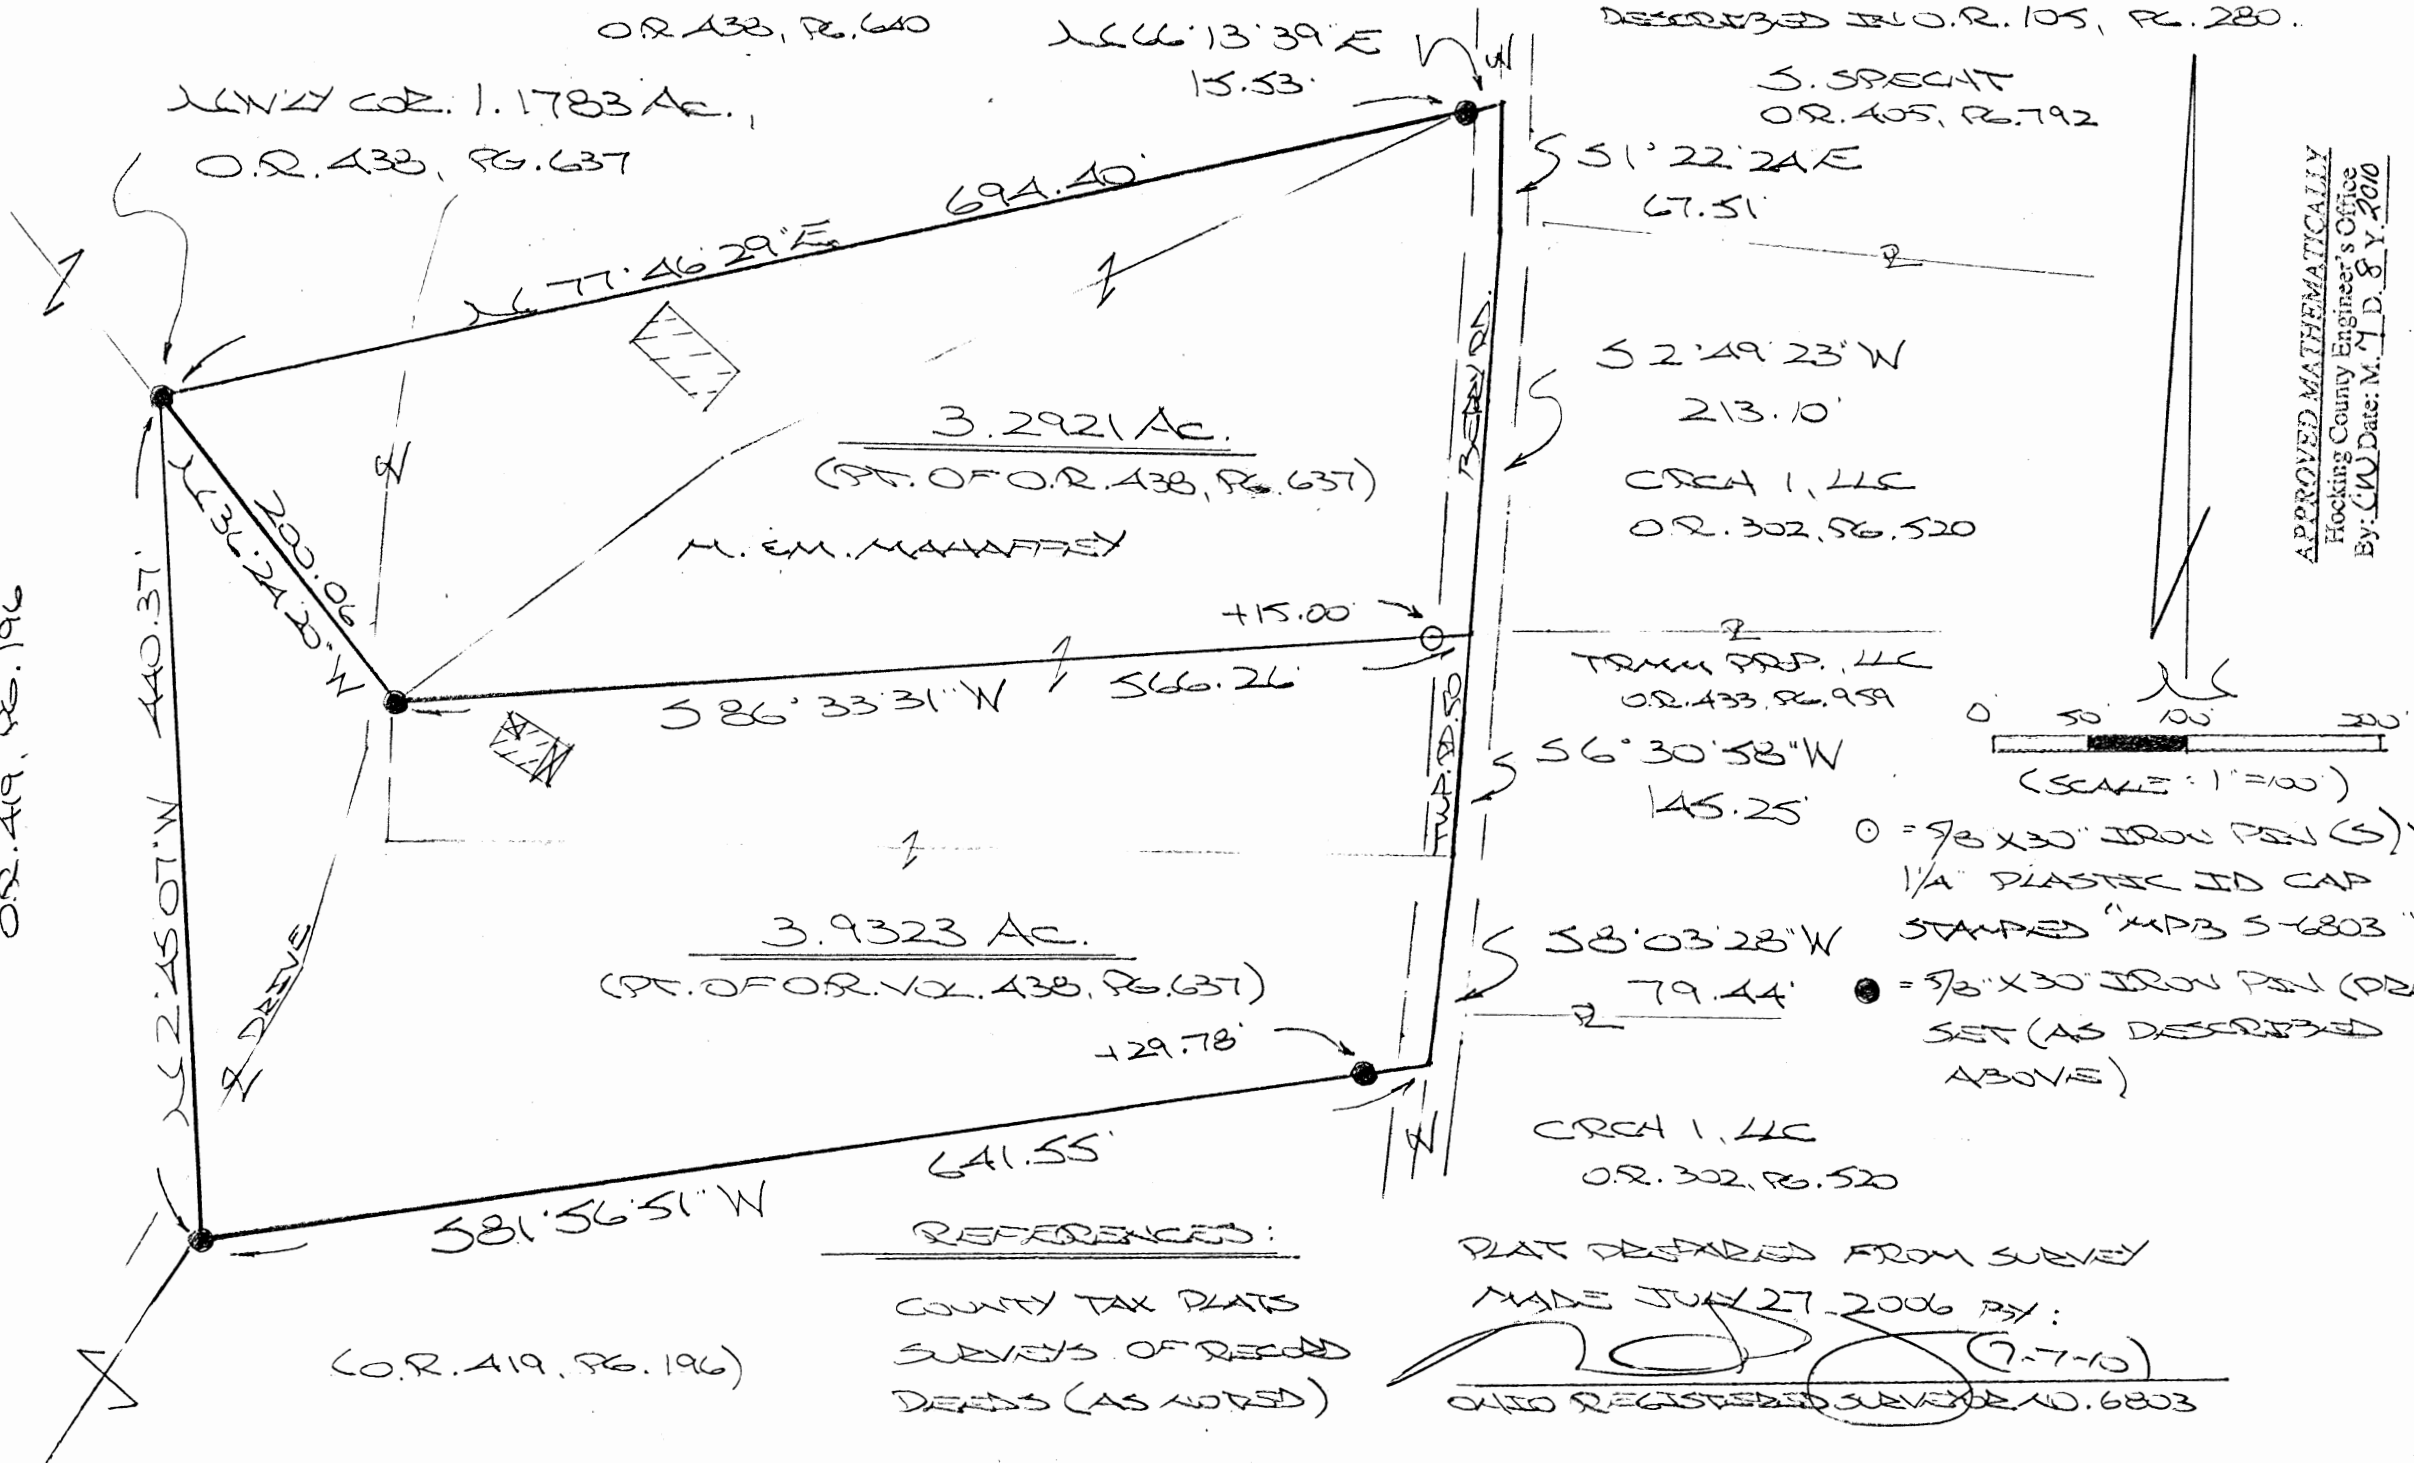 O.R. 438, PG. 640
N 66°13'39" E
15.53'
DESCRIBED IN O.R. 105, PG. 280.
S. SPECHT
O.R. 405, PG. 792
NW'LY COR. 1.1783 Ac.,
O.R. 438, PG. 637
S 1°22'24" E
67.51'
694.40'
N 77°46'29" E
APPROVED MATHEMATICALLY
Hocking County Engineer's Office
By: CW Date: M. 7 D. 8 Y. 2010
S 2°49'23" W
213.10'
CRCH 1, LLC
O.R. 302, PG. 520
BERRY RD.
3.2921 Ac.
(PT. OF O.R. 438, PG. 637)
M. & M. MAHAFFEY
200.06
N 36°24'20" W
440.37'
N 2°45'07" W
O.R. 419, PG. 196
+15.00'
566.26'
S 86°33'31" W
TWP. RD. 50
TRMM PRP., LLC
O.R. 433, PG. 959
S 6°30'58" W
145.25'
0' 50' 100' 200'
(SCALE : 1"=100')
N
= 5/8" X 30" IRON PIN (S)
1 1/4" PLASTIC ID CAP
STAMPED "MPB S-6803"
= 5/8" X 30" IRON PIN
SET (AS DESCRIBED
ABOVE)
3.9323 Ac.
(PT. OF O.R. VOL. 438, PG. 637)
S 8°03'28" W
79.44'
+29.78'
DRIVE
641.55'
S 81°56'51" W
CRCH 1, LLC
O.R. 302, PG. 520
(O.R. 419, PG. 196)
REFERENCES:
COUNTY TAX PLATS
SURVEYS OF RECORD
DEEDS (AS NOTED)
PLAT PREPARED FROM SURVEY
MADE JULY 27 2006 BY:
(7-7-10)
OHIO REGISTERED SURVEYOR NO. 6803